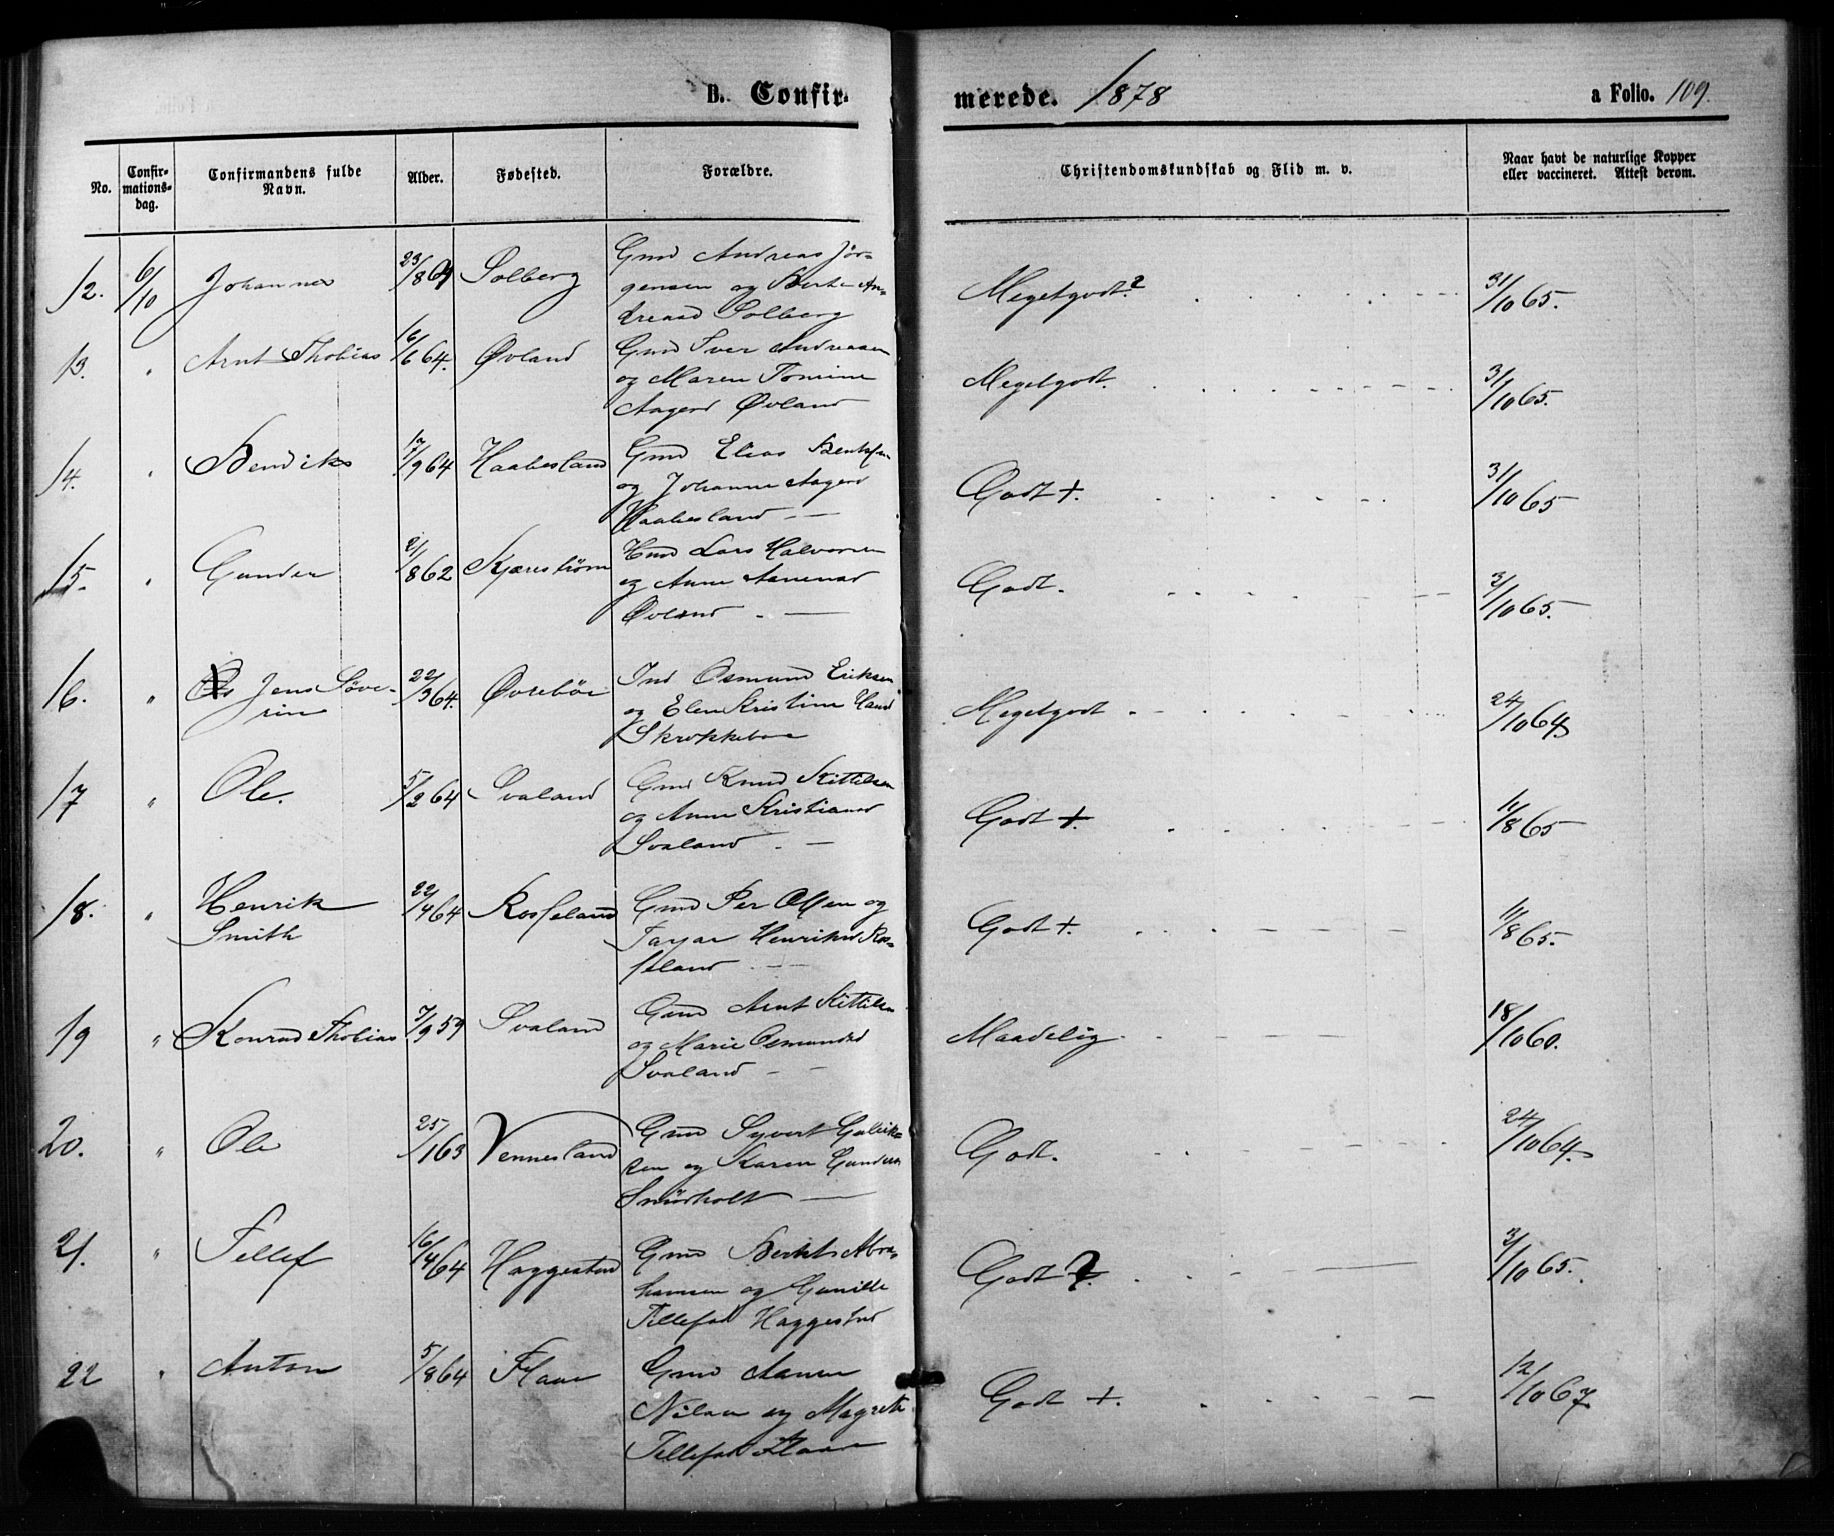 B. Confirmerede. 1878 a Folio. 109.
No. Confirmationsdag. Confirmandens fulde Navn. Alder. Fødested. Forældre. Christendomskundskab og Flid m. v. Naar havt de naturlige Kopper eller vaccineret. Attest derom.
12. 6/10 Johannes 23/8 64 Solberg Gmd Andreas Jör-
gensen og Berte An-
dreasd Solberg Megetgodt? 31/10 65.
13. " Arnt Thobias 16/6 64. Øvland Gmd Iver Andreasen
og Maren Tomine
Aagesd Øvland Megetgodt. 3/10 65.
14. " Bendiks 17/9 64 Haabesland Gmd Elias Bentsen
og Johanne Aagesd
Haabesland — Godt +. 3/10 65
15. " Gunder 2/8 62 Kjærestrøm Hmd Lars Halvorsen
og Anne Aanensd
Øvland — Godt. 3/10 65.
16. " Jens Søve-
rin 22/3 64. Øvrebøe Ind Osmund Eriksen
og Elen Kristine Hansd
Skrokkeboe Megetgodt 24/10 64
17 " Ole. 5/2 64 Svaland Gmd Knud Kittelsen
og Anne Kristiansd
Svaland — Godt +. 11/8 65
18. " Henrik
Smith 22/4 64 Rosseland Gmd Per Olsen og
Henriksd Ros-
seland Godt +. 11/8 65.
19 " Konrad Thobias 7/9 59 Svaland Gmd Arnt Kittelsen
og Marie Osmundsd
Svaland — Maadelig 18/10 60.
20. " Ole 25/1 63 Vennesland Gmd Syvert Gulik-
sen og Karen Gundersd
Smürholt — Godt. 24/10 64.
21. " Tellef 16/4 64 Haggestad Gmd Berthe Abra-
hamsen og Gunilde
Tellefsd Haggestad Godt ? 3/10 65.
22 " Anton 5/8 64 Flaae Gmd Aanen
Nilsen og Magrete
Tellefsd Flaae Godt +. 12/10 67.